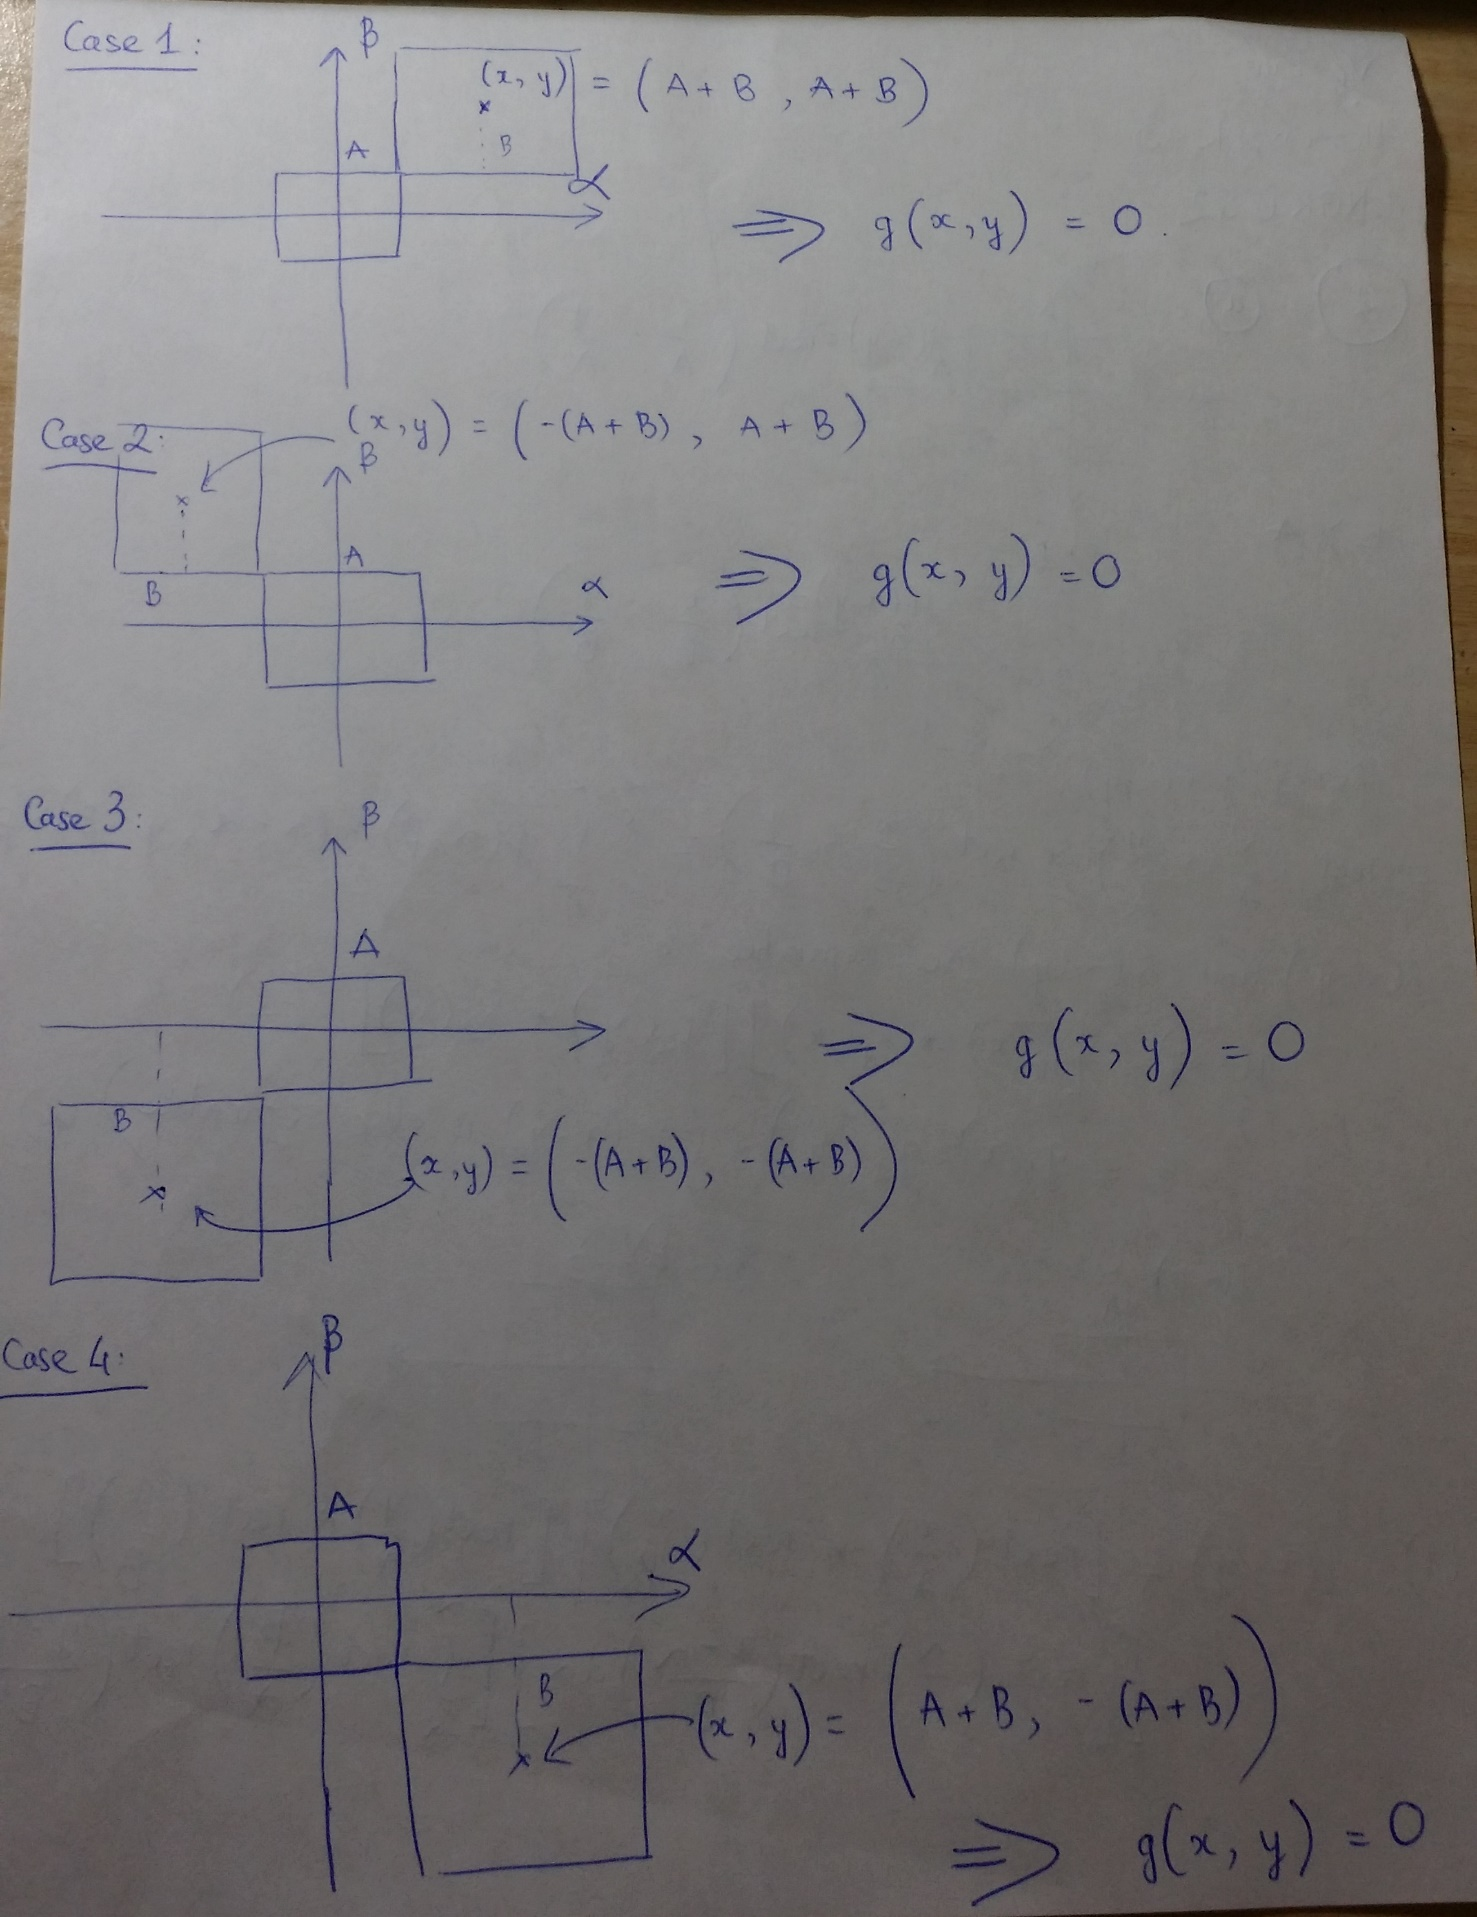 Case 1:
β
(x, y) = (A + B, A + B)
A
B
α
⇒ g(x, y) = 0.
(x, y) = (-(A + B), A + B)
Case 2:
β
A
B
α
⇒ g(x, y) = 0
Case 3:
β
A
⇒ g(x, y) = 0
B
(x, y) = (-(A + B), -(A + B))
Case 4:
β
A
α
B
(x, y) = (A + B, -(A + B))
⇒ g(x, y) = 0